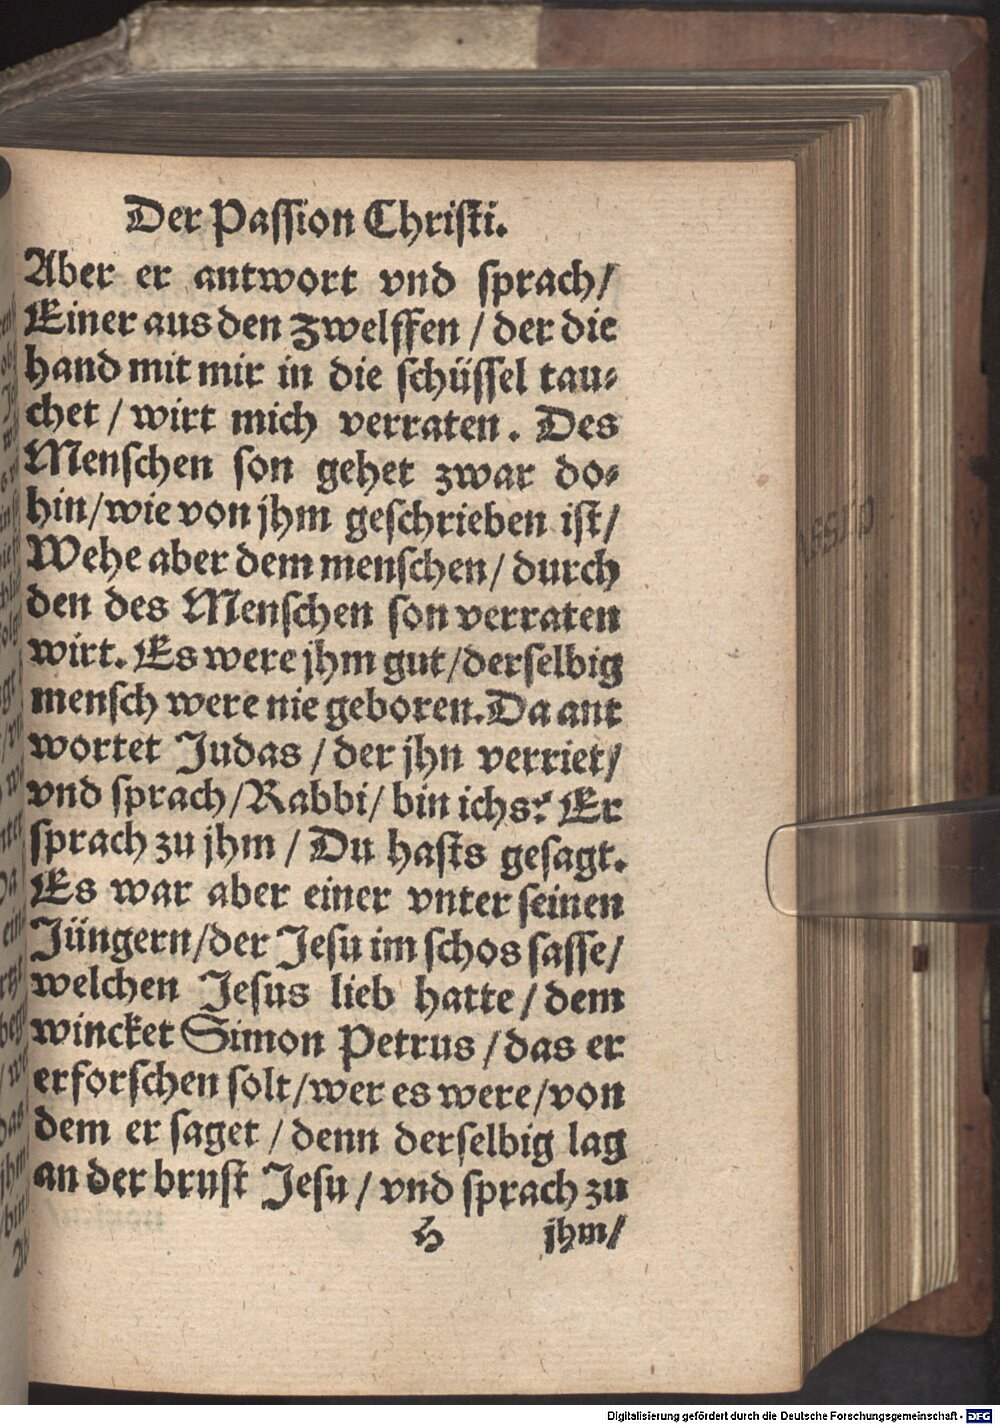 Der Passion Christi.
Aber er antwort vnd sprach/
Einer aus den zwelffen / der die
hand mit mir in die schüssel tau⸗
chet / wirt mich verraten. Des
Menschen son gehet zwar do⸗
hin/wie von jhm geschrieben ist/
Wehe aber dem menschen/ durch
den des Menschen son verraten
wirt. Es were jhm gut/derselbig
mensch were nie geboren. Da ant
wortet Judas / der jhn verriet/
vnd sprach/Rabbi/ bin ichs? Er
sprach zu jhm / Du hasts gesagt.
Es war aber einer vnter seinen
Jüngern/der Jesu im schos sasse/
welchen Jesus lieb hatte / dem
wincket Simon Petrus / das er
erforschen solt/wer es were/von
dem er saget / denn derselbig lag
an der brust Jesu / vnd sprach zu
H jhm/
Digitalisierung gefördert durch die Deutsche Forschungsgemeinschaft - DFG